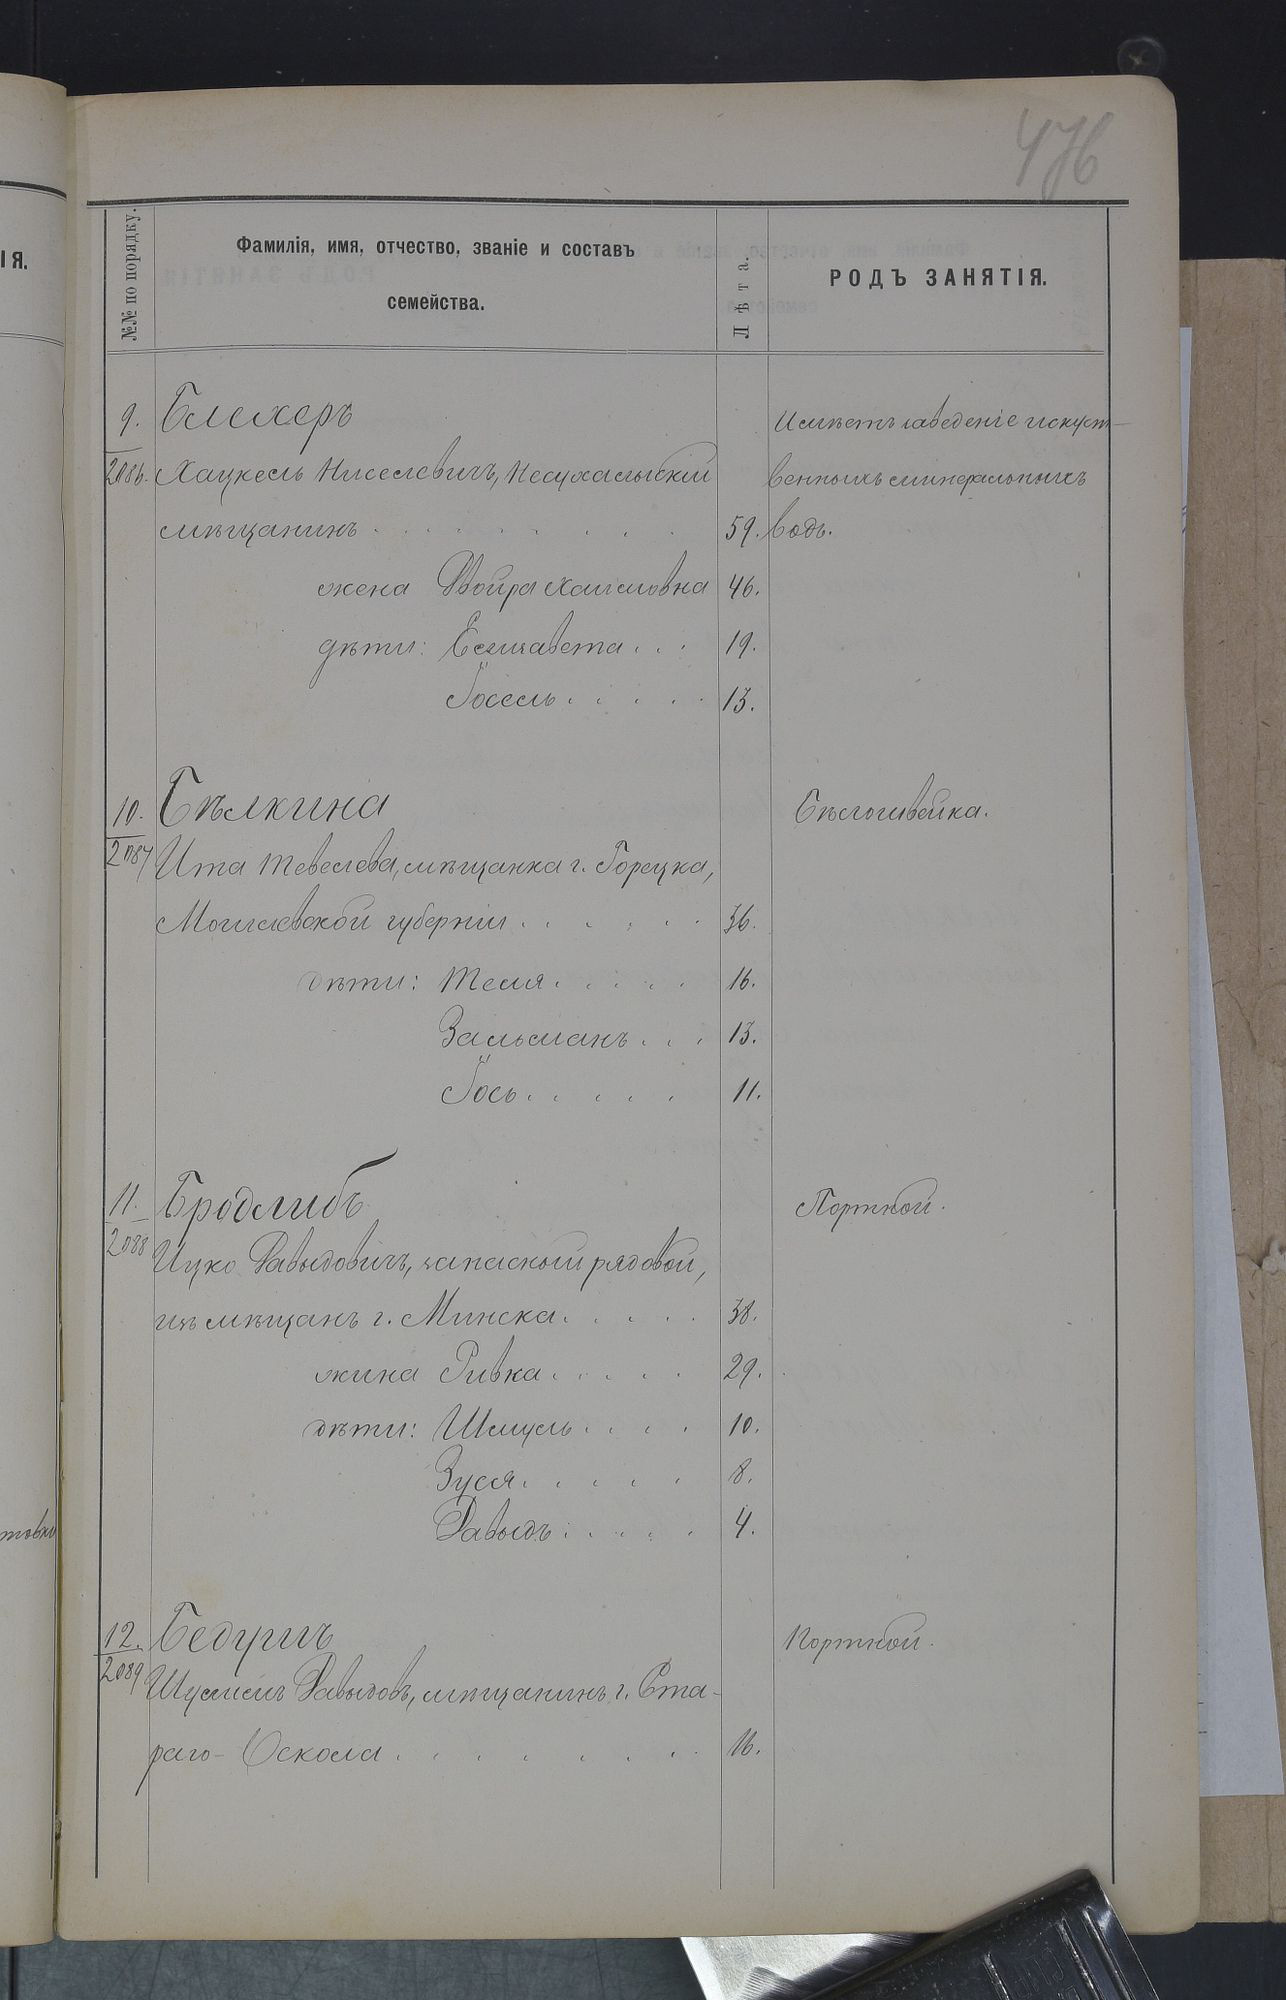 476
ІЯ.
№№ по порядку.
Фамилія, имя, отчество, званіе и составъ
семейства.
Лѣта.
РОДЪ ЗАНЯТІЯ.
9. Блехеръ
Имѣетъ заведеніе искуст-
2086. Хацкель Ниселевичъ,
венныхъ минеральныхъ
мѣщанинъ 59. водъ.
жена Двойра Хаимовна 46.
дѣти: Елизавета 19.
Іосель 13.
10. Бѣлкина Бѣлошвейка.
2087 Ита Тевелева, мѣщанка г. Горецка,
Могилевской губерніи 36.
дѣти: Темя 16.
Зальманъ 13.
Іось 11.
11. Бродлибъ Портной.
2088 Ицко Давыдовичъ, запасный рядовой,
изъ мѣщанъ г. Минска 38.
жина Ривка 29.
дѣти: Шмуль 10.
Зуся 8.
Давыдъ 4.
товко
12. Портной.
2089 Давыдовъ, мѣщанинъ г. Ста-
раго-Оскола 16.